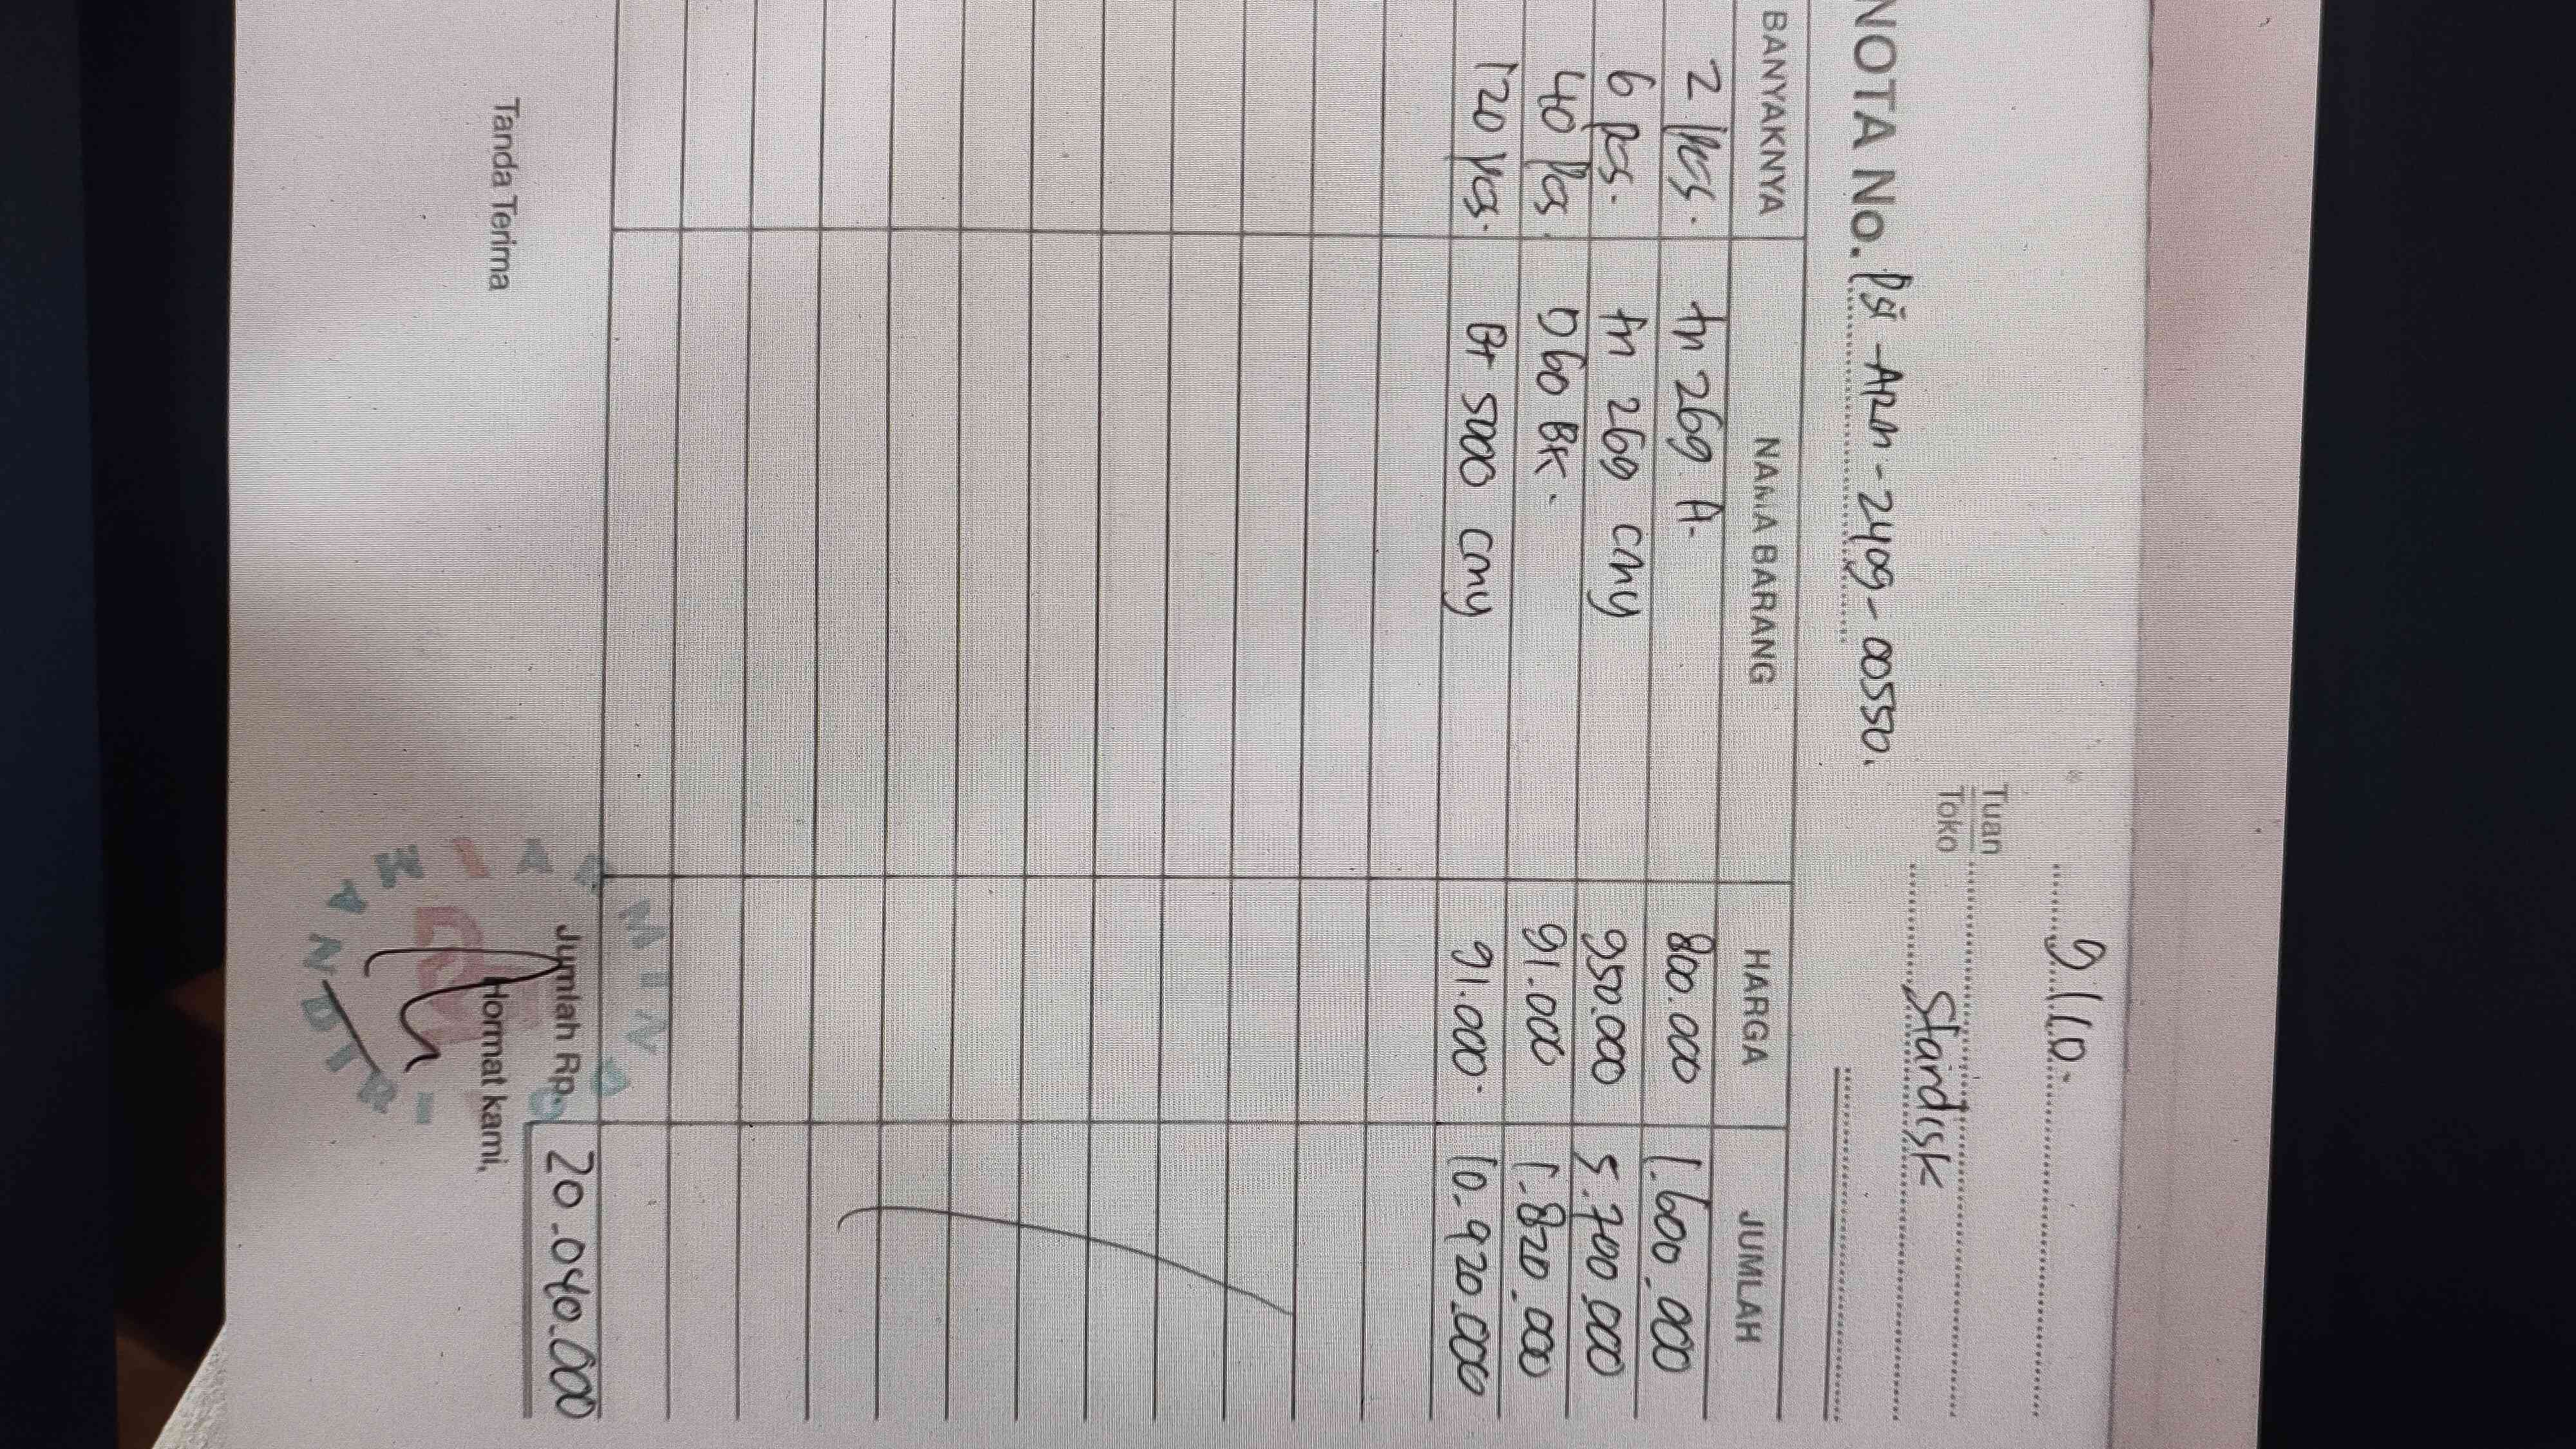 9/10.
Tuan
Toko Stardisk
NOTA No. PSI-ARM-2409-00550.
BANYAKNYA NAMA BARANG HARGA JUMLAH
2 pcs. tn 269 A. 800.000 1.600.000
6 pcs. tn 269 cmy 950.000 5.700.000
40 pcs. D60 BK. 91.000 1.820.000
120 pcs. Bt 5000 cmy 91.000. 10.920.000
Jumlah Rp. 20.040.000
Tanda Terima Hormat kami,
ARMINDO
MANDIRI